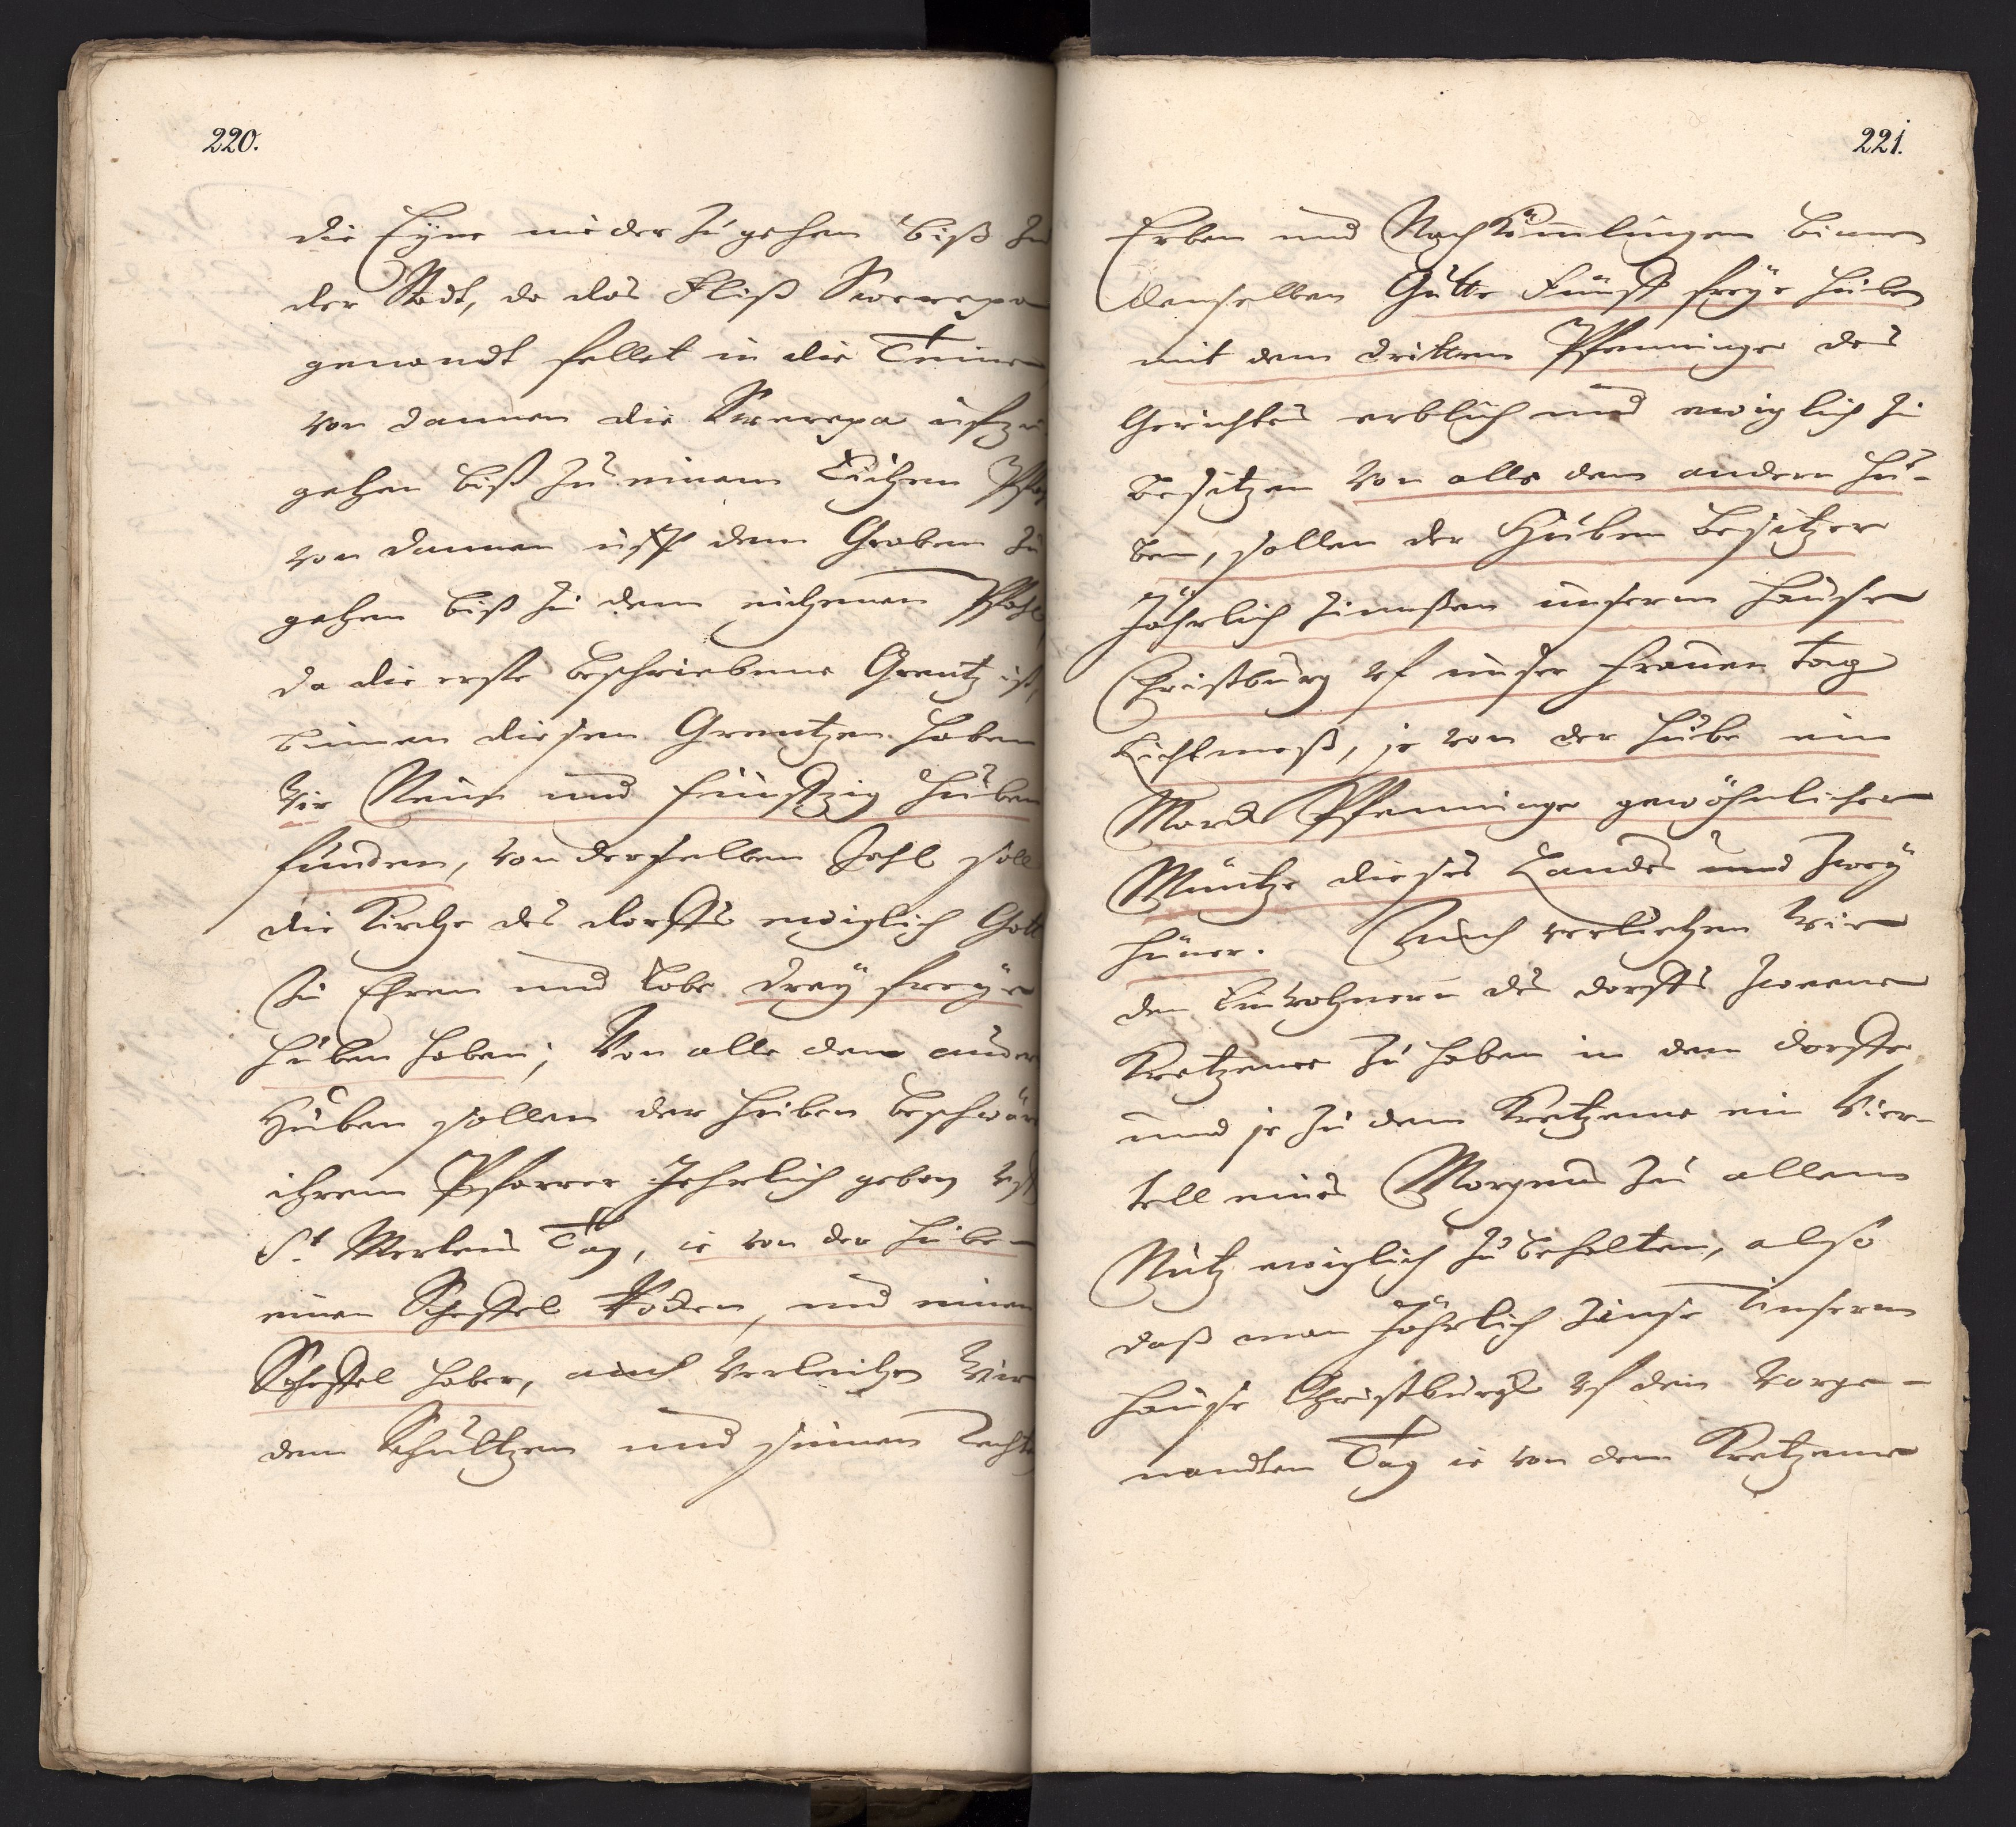 220.
die Tyne nieder zu gehen biß zu
der Stadt, da das Fließ
genandt fellet in die
von dannen die ufzu
gehen biß zu einem Eichen
von dannen uff dem Graben zu
gehen biß zu dem eichenen Pfahl,
da die erste beschriebene Grentz ist,
binnen diesen Grentzen haben
Wir Neun und funffzig Huben
funden, von derselben Zahl soll
die Kirche des dorffs ewiglich Gott
zu Ehren und Lobe drey freye
Huben haben; Von alle den andern
Huben sollen der Huben
ihrem Pfarrer Jehrlich geben uff
St. Mertens Tag, ie von der Hube
einen Scheffel Rocken, und einen
Scheffel Haber, auch Verleihen Wir
dem Schultzen und seinen rechten
221.
Erben und Nachkömlingen binnen
demselben Gutte Fünff freye Huben
mit dem dritten Pfenninge des
Gerichtes erblich und ewiglich zu
besitzen Von alle den andern Hu-
ben, sollen der Huben Besitzer
Jährlich Zinnßen unserm Hause
Christburg uf unser Frauen Tag
Lichtmeß, je von der Hube ein
Marck Pfenninge gewöhnlicher
Müntze dieses Landes und Zwey
Hüner. Auch verliehen Wir
den Einwohnern des dorffs Zweene
Kretzeme zu haben in dem dorffe
und je zu dem Kretzeme ein Vier-
tell eines Morgens zu allem
Nutz ewiglich zu behalten, also
daß man Jährlich Zinse Unserm
Hause Christburg uf den Vorge-
nandten Tag ie von dem Kretzeme